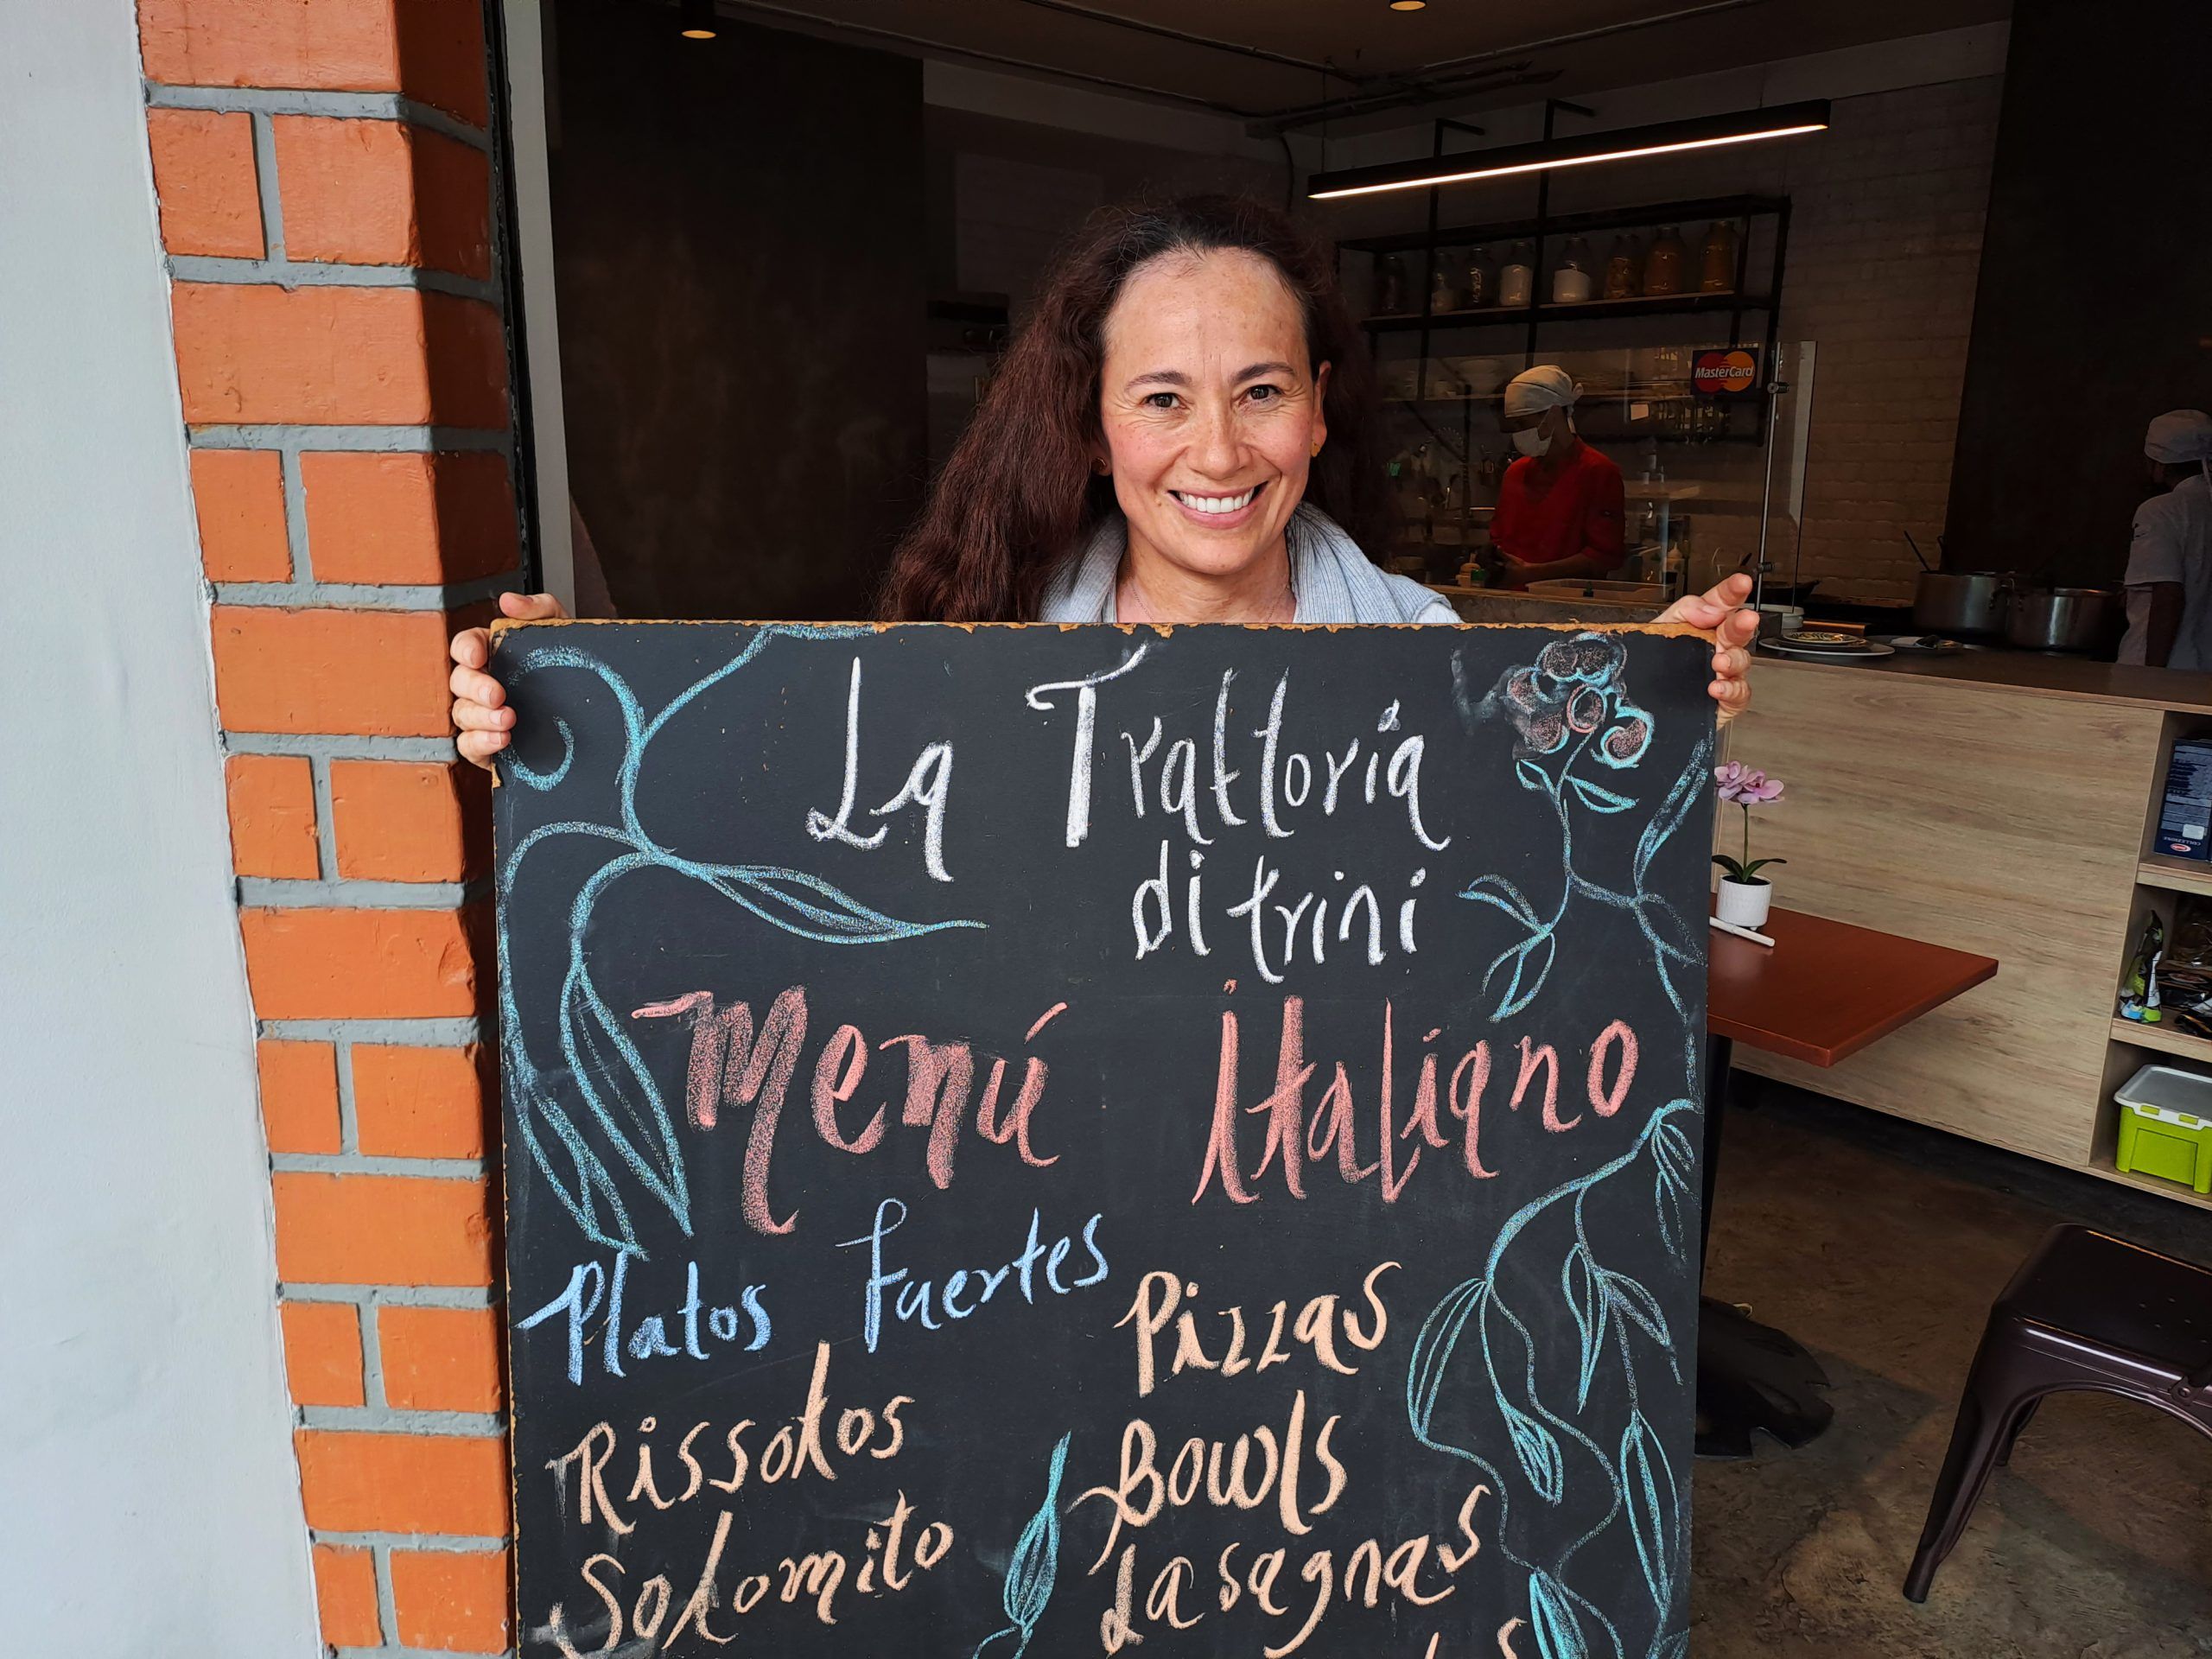 La Trattoria
di trini
Menú italiano
Platos fuertes
Rissotos
Solomito
Pizzas
Bowls
Lasagnas
MasterCard